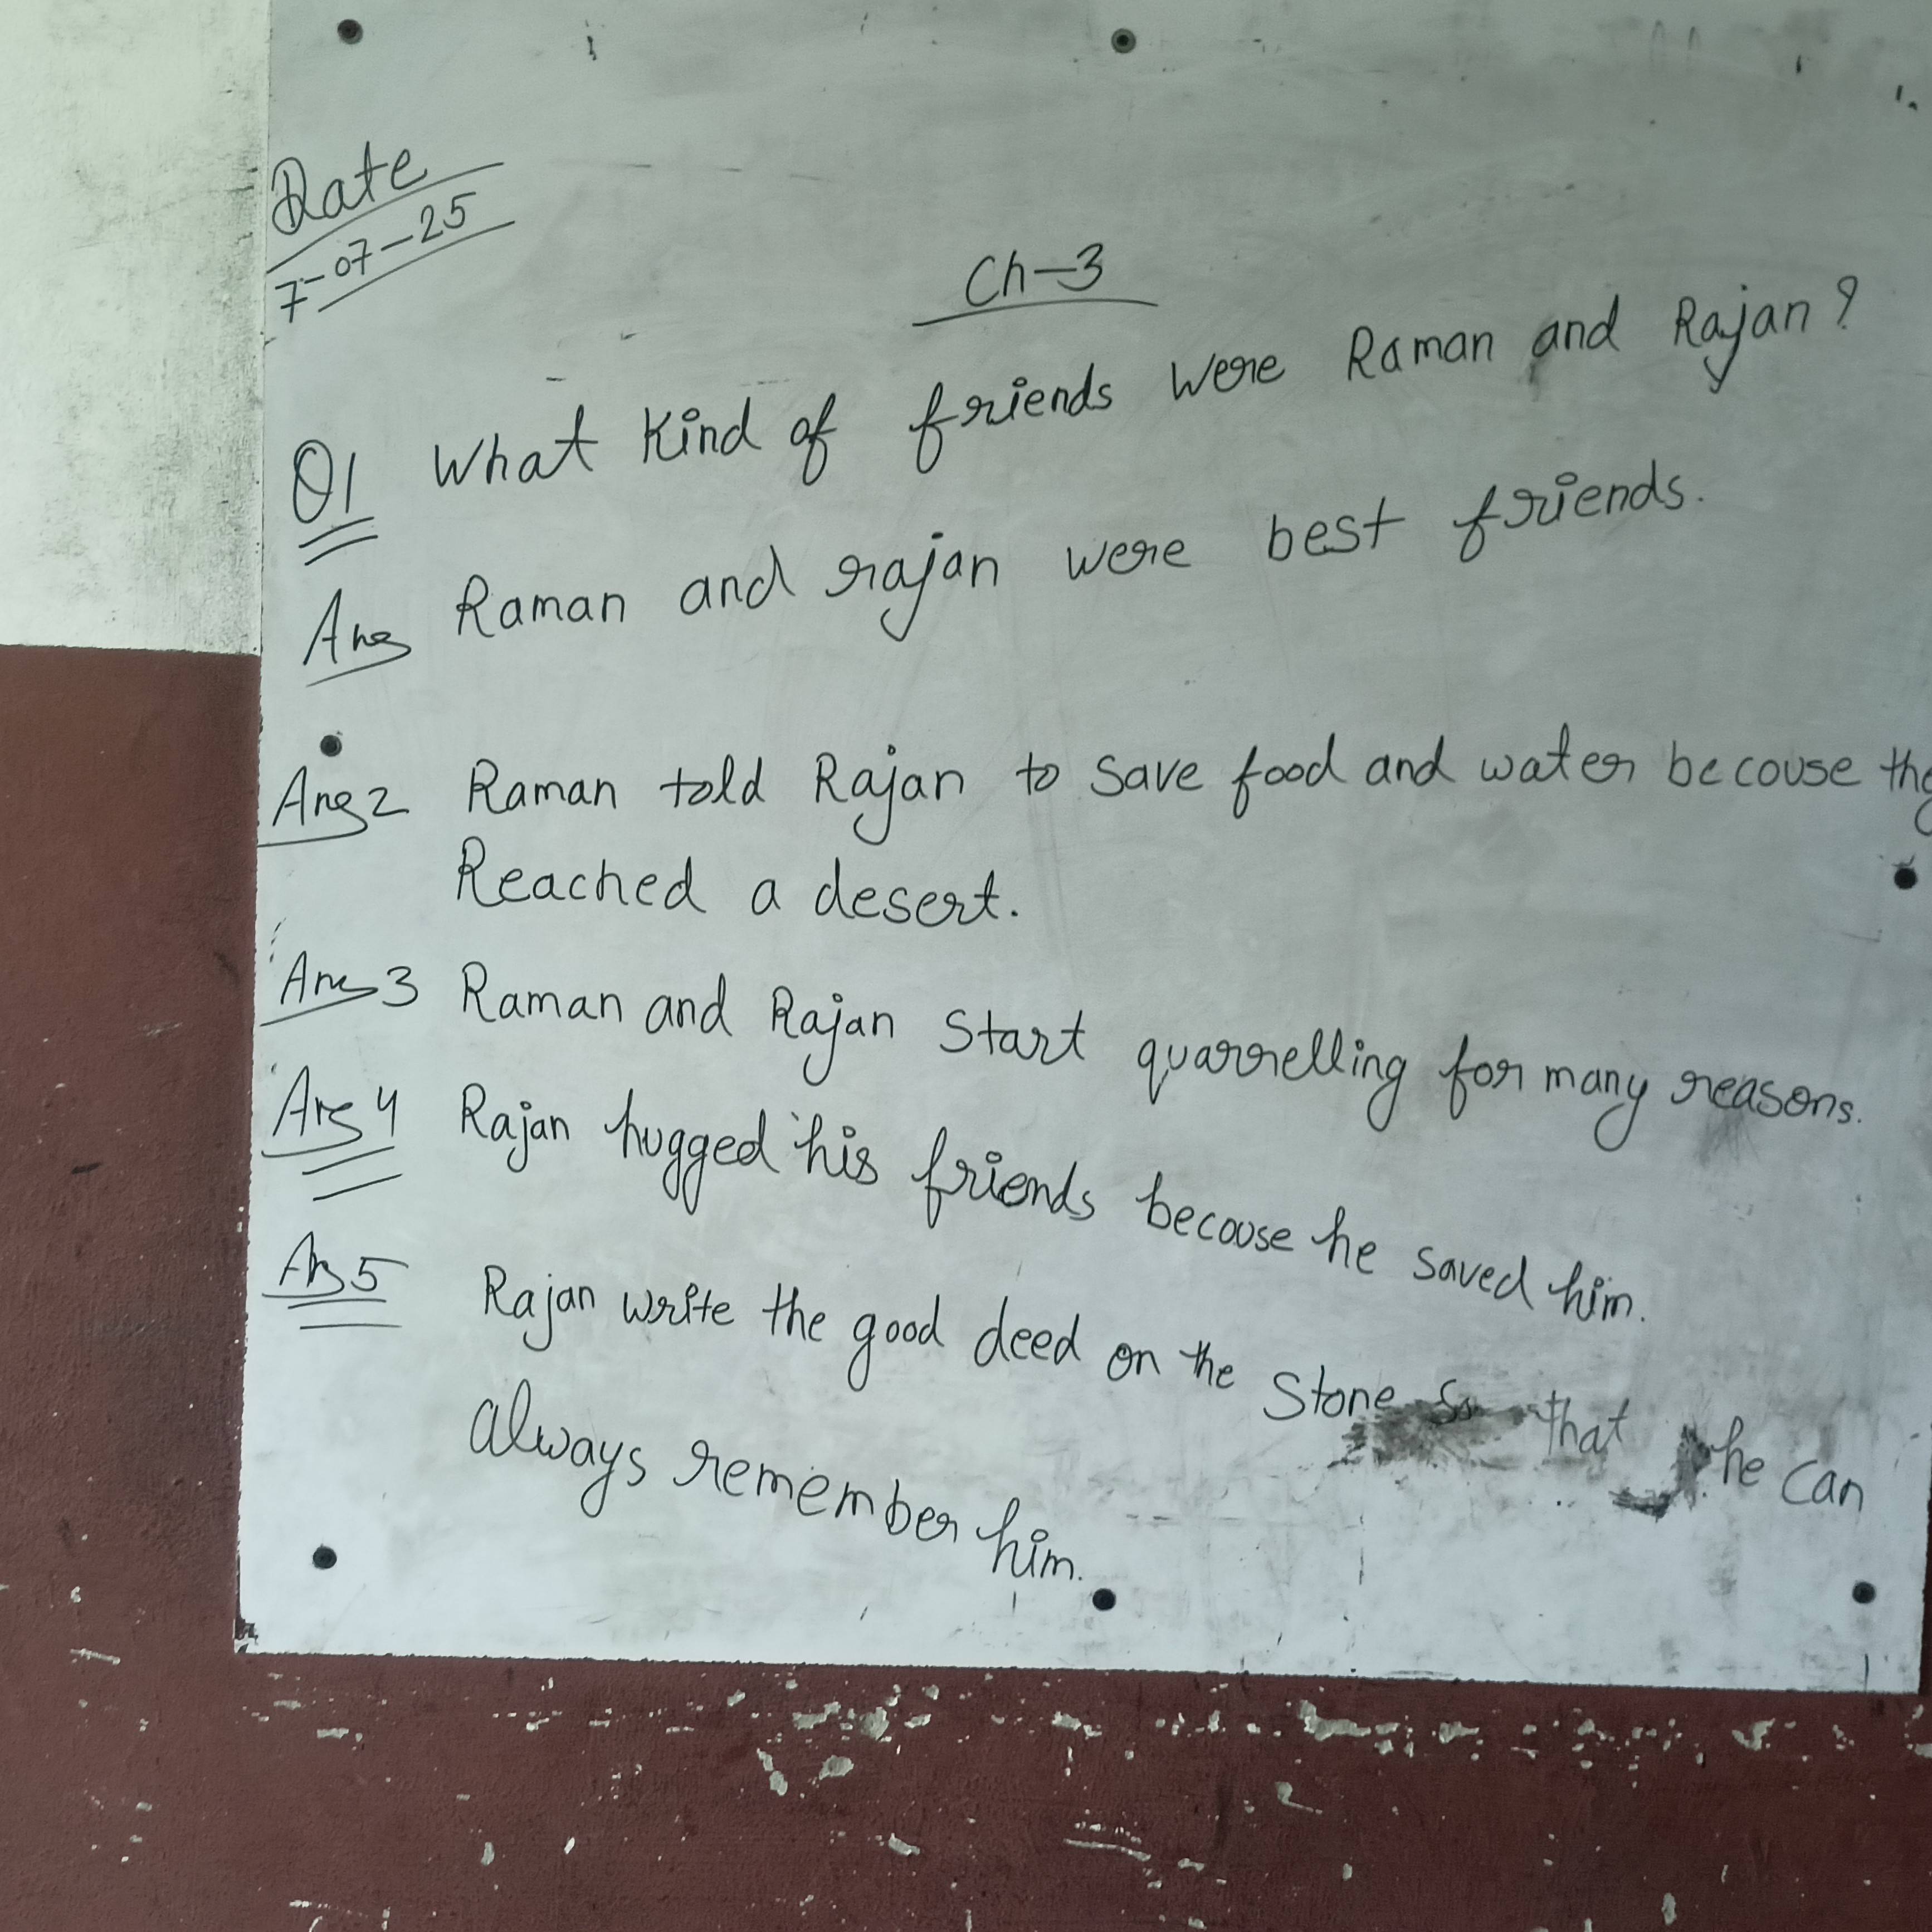 Date
7-07-25
Ch-3
Q1 What Kind of friends were Raman and Rajan?
Ans Raman and rajan were best friends.
Ans 2 Raman told Rajan to save food and water becouse
Reached a desert.
Ans 3 Raman and Rajan Start quarrelling for many reasons.
Ans 4 Rajan hugged his friends becouse he saved him.
Ans 5 Rajan write the good deed on the Stone so that he can
always remember him.